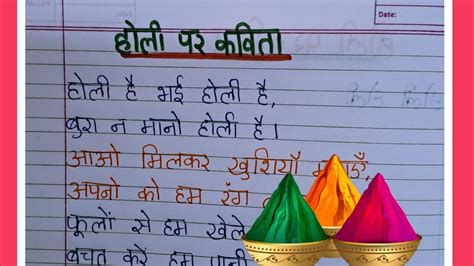 Date:
होली पर कविता
होली है भई होली है,
बुरा न मानो होली है।
आओ मिलकर खुशियाँ
अपनो को हम रंग
फूलों से हम खेले
बचत करें हम पानी